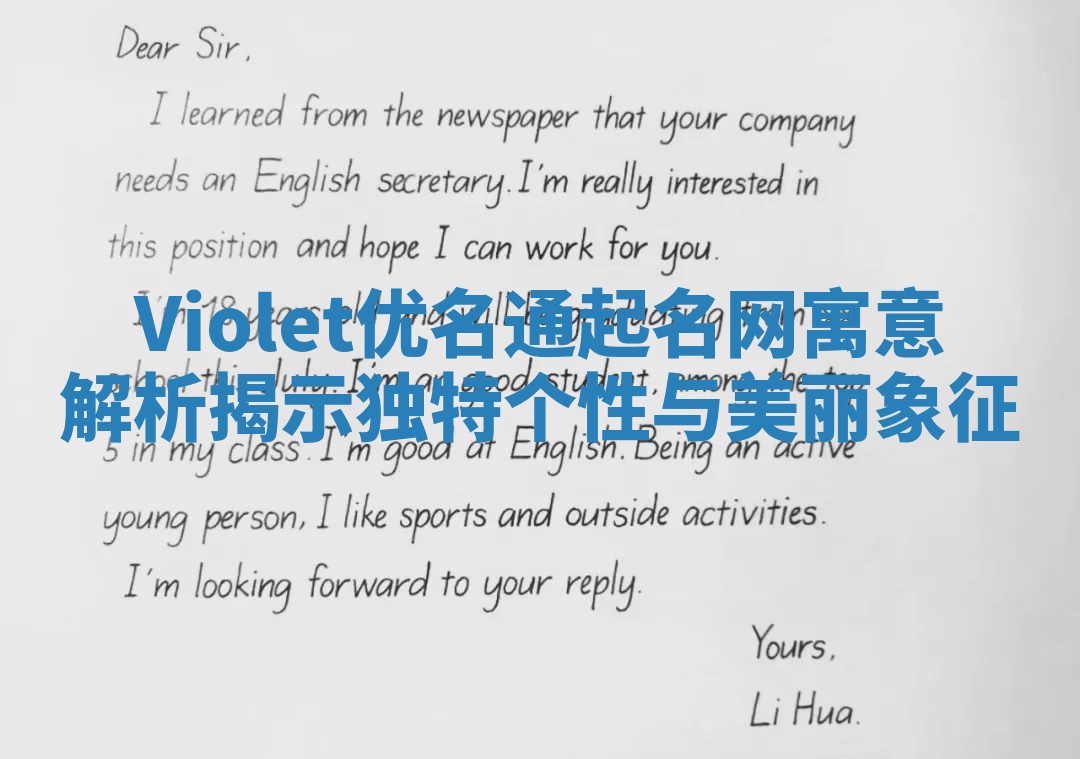 Dear Sir,
I learned from the newspaper that your company
needs an English secretary. I'm really interested in
this position and hope I can work for you.
I'm 18 years old and will be graduating from
Violet优名通起名网寓意
school this July. I'm a good student, among the top
解析揭示独特个性与美丽象征
5 in my class. I'm good at English. Being an active
young person, I like sports and outside activities.
I'm looking forward to your reply.
Yours,
Li Hua.